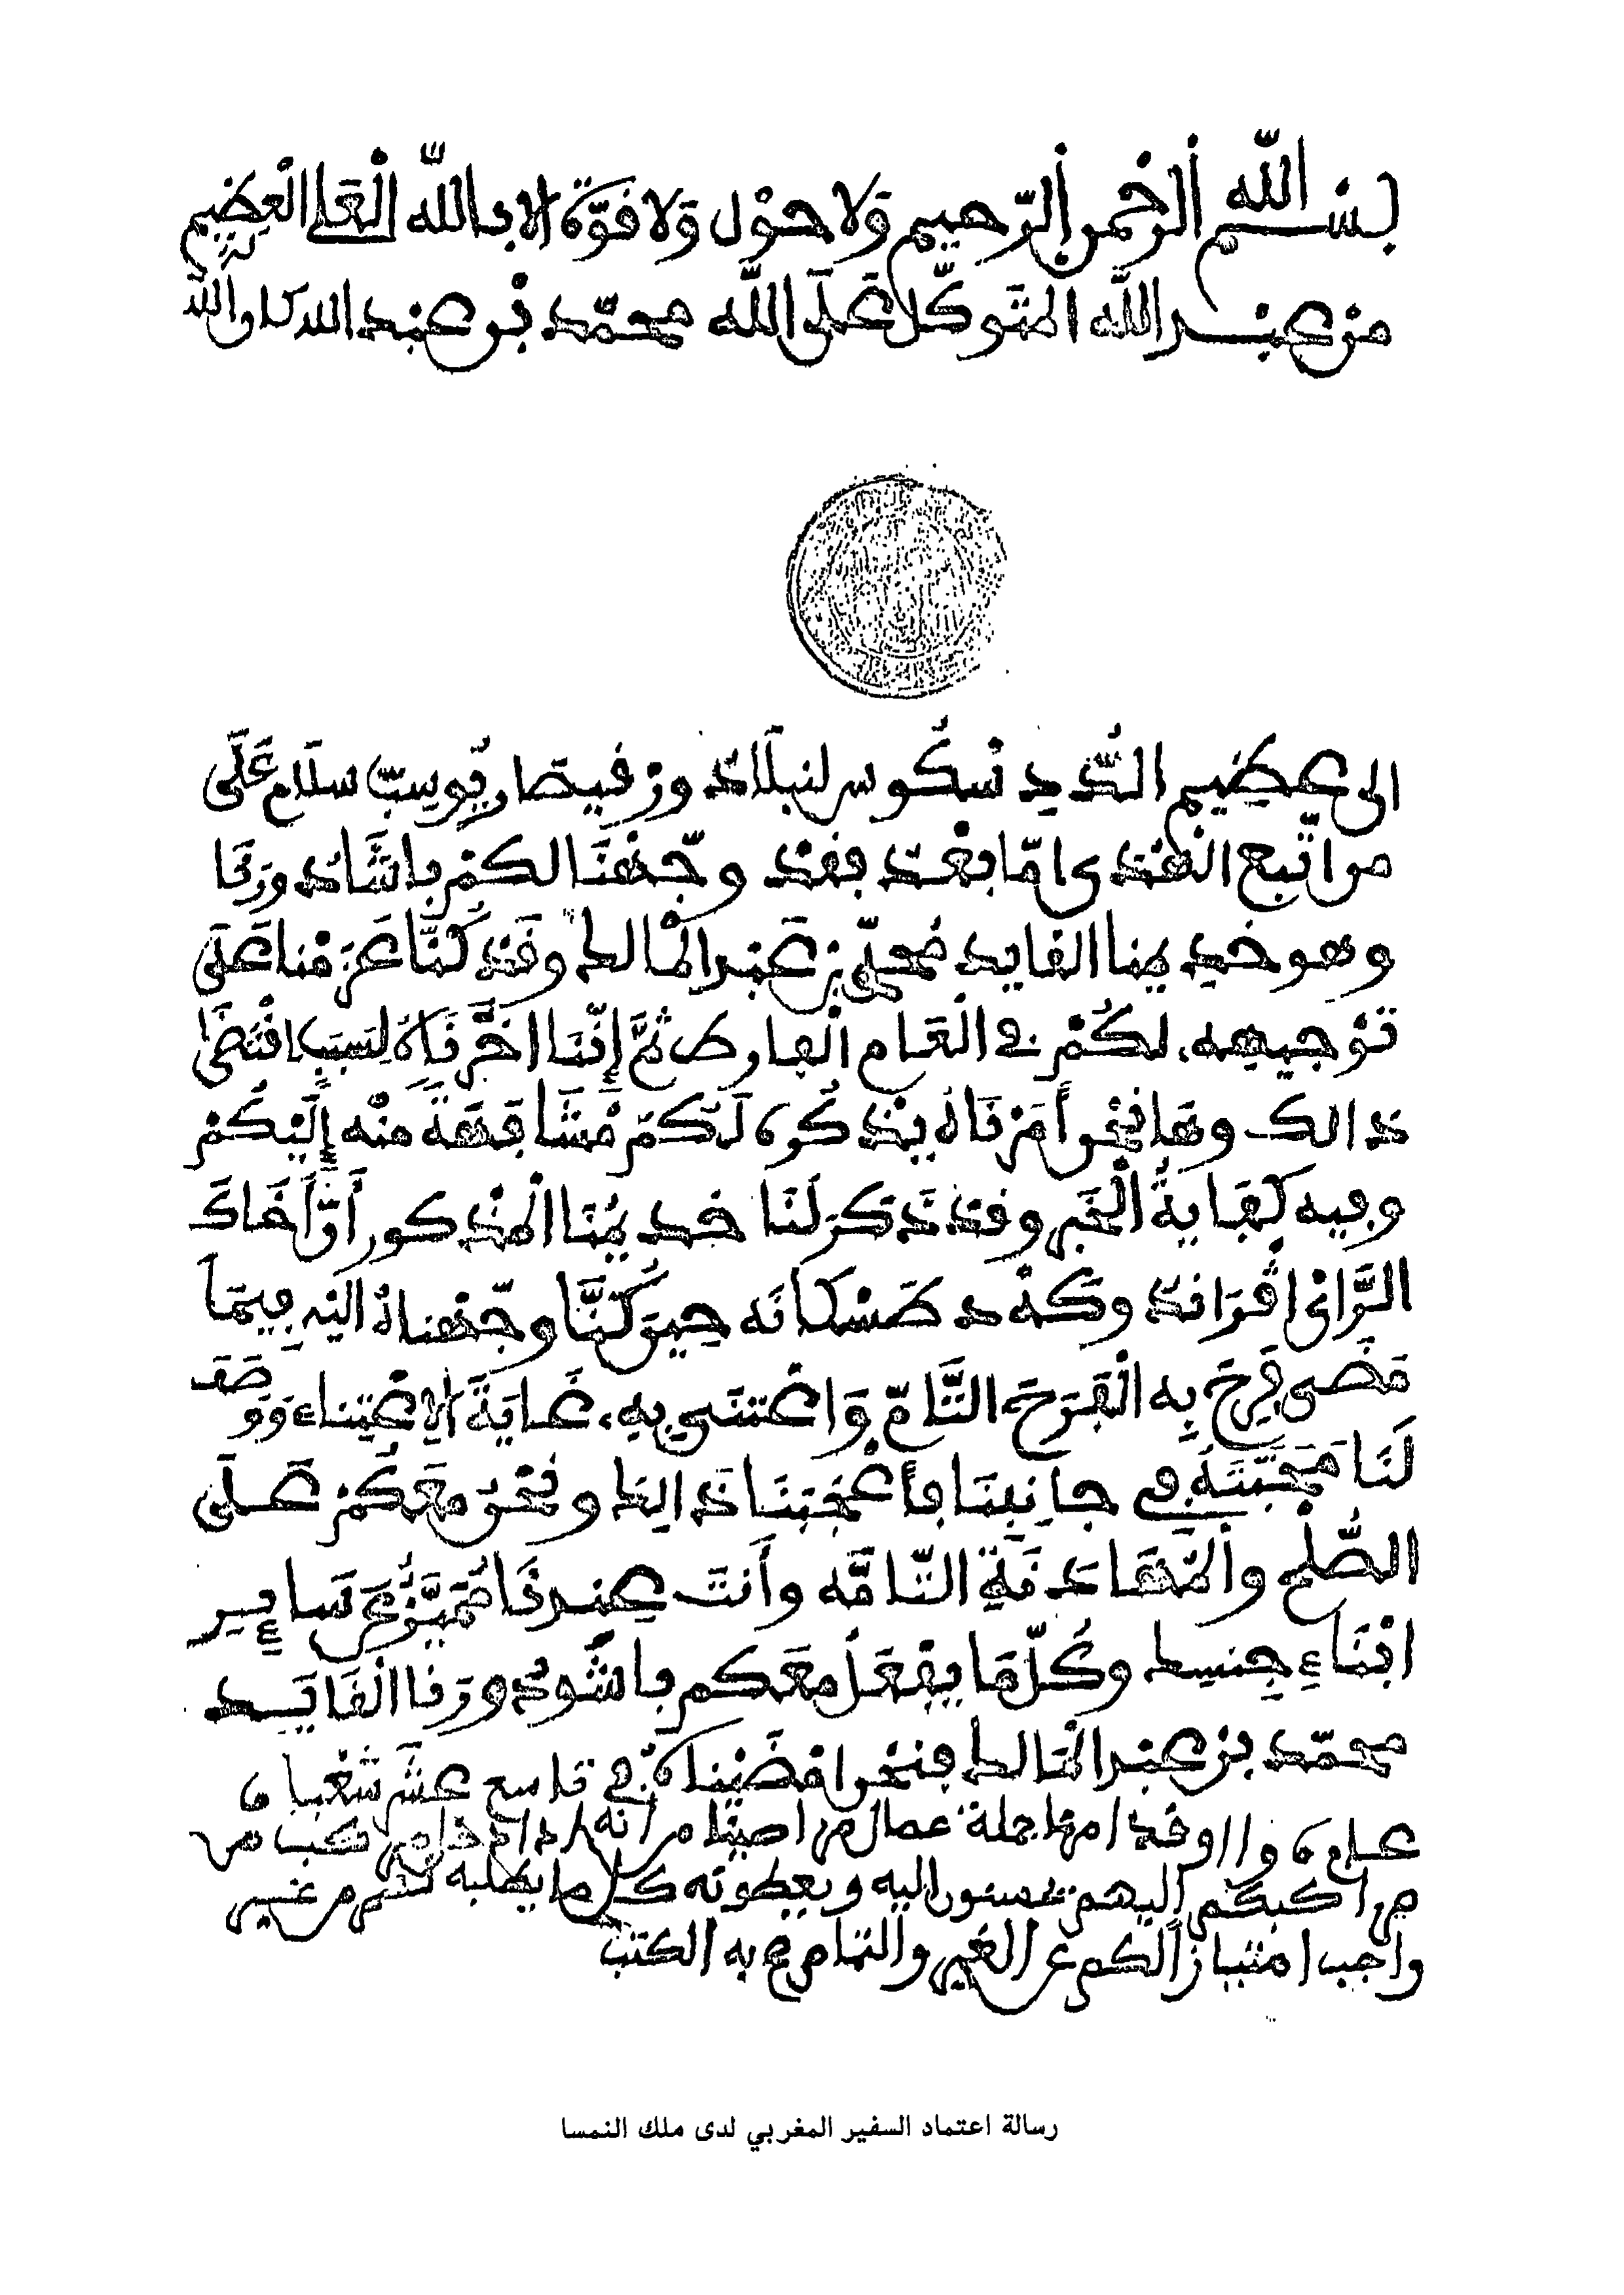 بِسْمِ اللّٰهِ الرَّحْمٰنِ الرَّحِيمِ وَلَا حَوْلَ وَلَا قُوَّةَ إِلَّا بِاللّٰهِ الْعَلِيِّ الْعَظِيمِ
من عبد الله المتوكل على الله محمد بن عبد الله كان الله له
الى عظيم الدُّدِسْكُو سر لنبلاد ورفيصار يُوسِبّ سلام عَلَى
من اتّبع الهُدى امّا بعْد فقد وجّهْنَا لكم باشَادُورَنَا
وهو خديمنا القايد مُحمّد بن عَبْد المَالك وقَد كُنَّا عَزمْنا عَلَى
تَوْجيهه لكُمْ في الْعَام الْفارط ثمَّ إِنّنَا اخَّرْنَاهُ لِسَبَبٍ اقْتَضَى
ذالك وهَا نحْن أَمَرْنَاهُ يذكُر لَكم مُشَافَهَةً منْه إِلَيْكُمْ
وفيه كِفَايَةُ الْخَبر وقد ذَكَرَ لَنَا خديمُنَا المذكور أَنَّ أَخَاكَ
الڭرَانْ ... د طَسْكَانَه حِينَ كُنَّا وجّهناهُ اليْه فِيمَا
مَضَى فَرِحَ بِه الْفَرَحَ التَّامّ وَاعْتنَى بِه غَايَةَ الاِعْتِناء وَوَصَفَ
لَنَا مَحَبَّتَهُ في جانِبِنَا فأَعْجَبَنَا ذَالِكَ ونَحْنُ معَكُمْ عَلَى
الصُّلْح والْمُهَادَنَةِ التَّامَّه وأَنتَ عِنْدنَا مُمَيَّزٌ عَن سَايِر
ابْنَاءِ جِنسِك وكُلّ مَا يفْعَلُ معَكم باشَدُورنا القَايَد
محمّد بن عبد المالك فنحن امْضَيْناه في تاسع عشَر شَعْبان
عام ... وقد امرنا جملة عمال مراصينا من انه اذا دخل مركب من
مراكبكم اليهم يحسنون اليه ويعطونه كل ما يطلبه منهم من غير
واجب امتيازا لكم عن الغير والتمام من به الكتب
رسالة اعتماد السفير المغربي لدى ملك النمسا